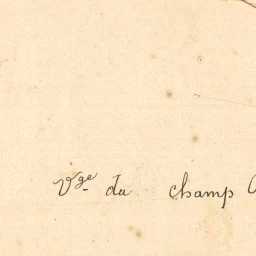 Vge du champ